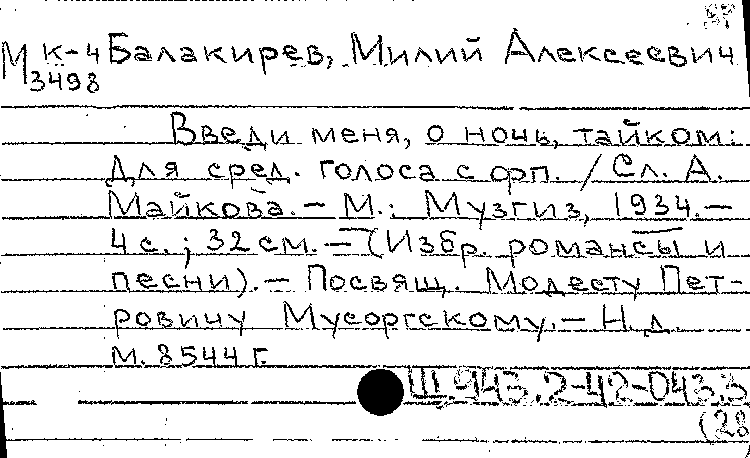 М К-4 Балакирев, Милий Алексеевич
3498
Введи меня, о ночь, тайком:
Для сред. голоса с фп. / Сл. А.
Майкова. – М.: Музгиз, 1934. –
4 с.; 32 см. – (Избр. романсы и
песни). – Посвящ. Модесту Пет-
ровичу Мусоргскому. – Н. д.
М. 8544 г.
Щ 943.2-42-043.3
(28